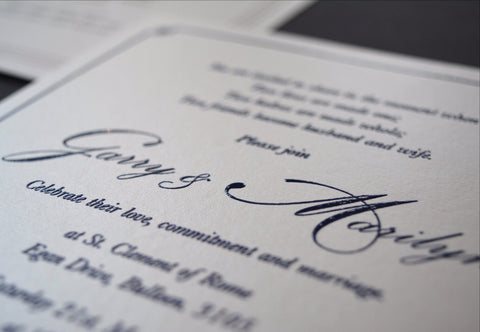 You are invited to share in the moment when
Two lives are made one;
Two halves are made whole;
Two friends become husband and wife.
Please join
Garry & Marilyn
Celebrate their love, commitment and marriage.
at St. Clement of Rome
Egan Drive, Bulleen, 3105
Saturday 21st